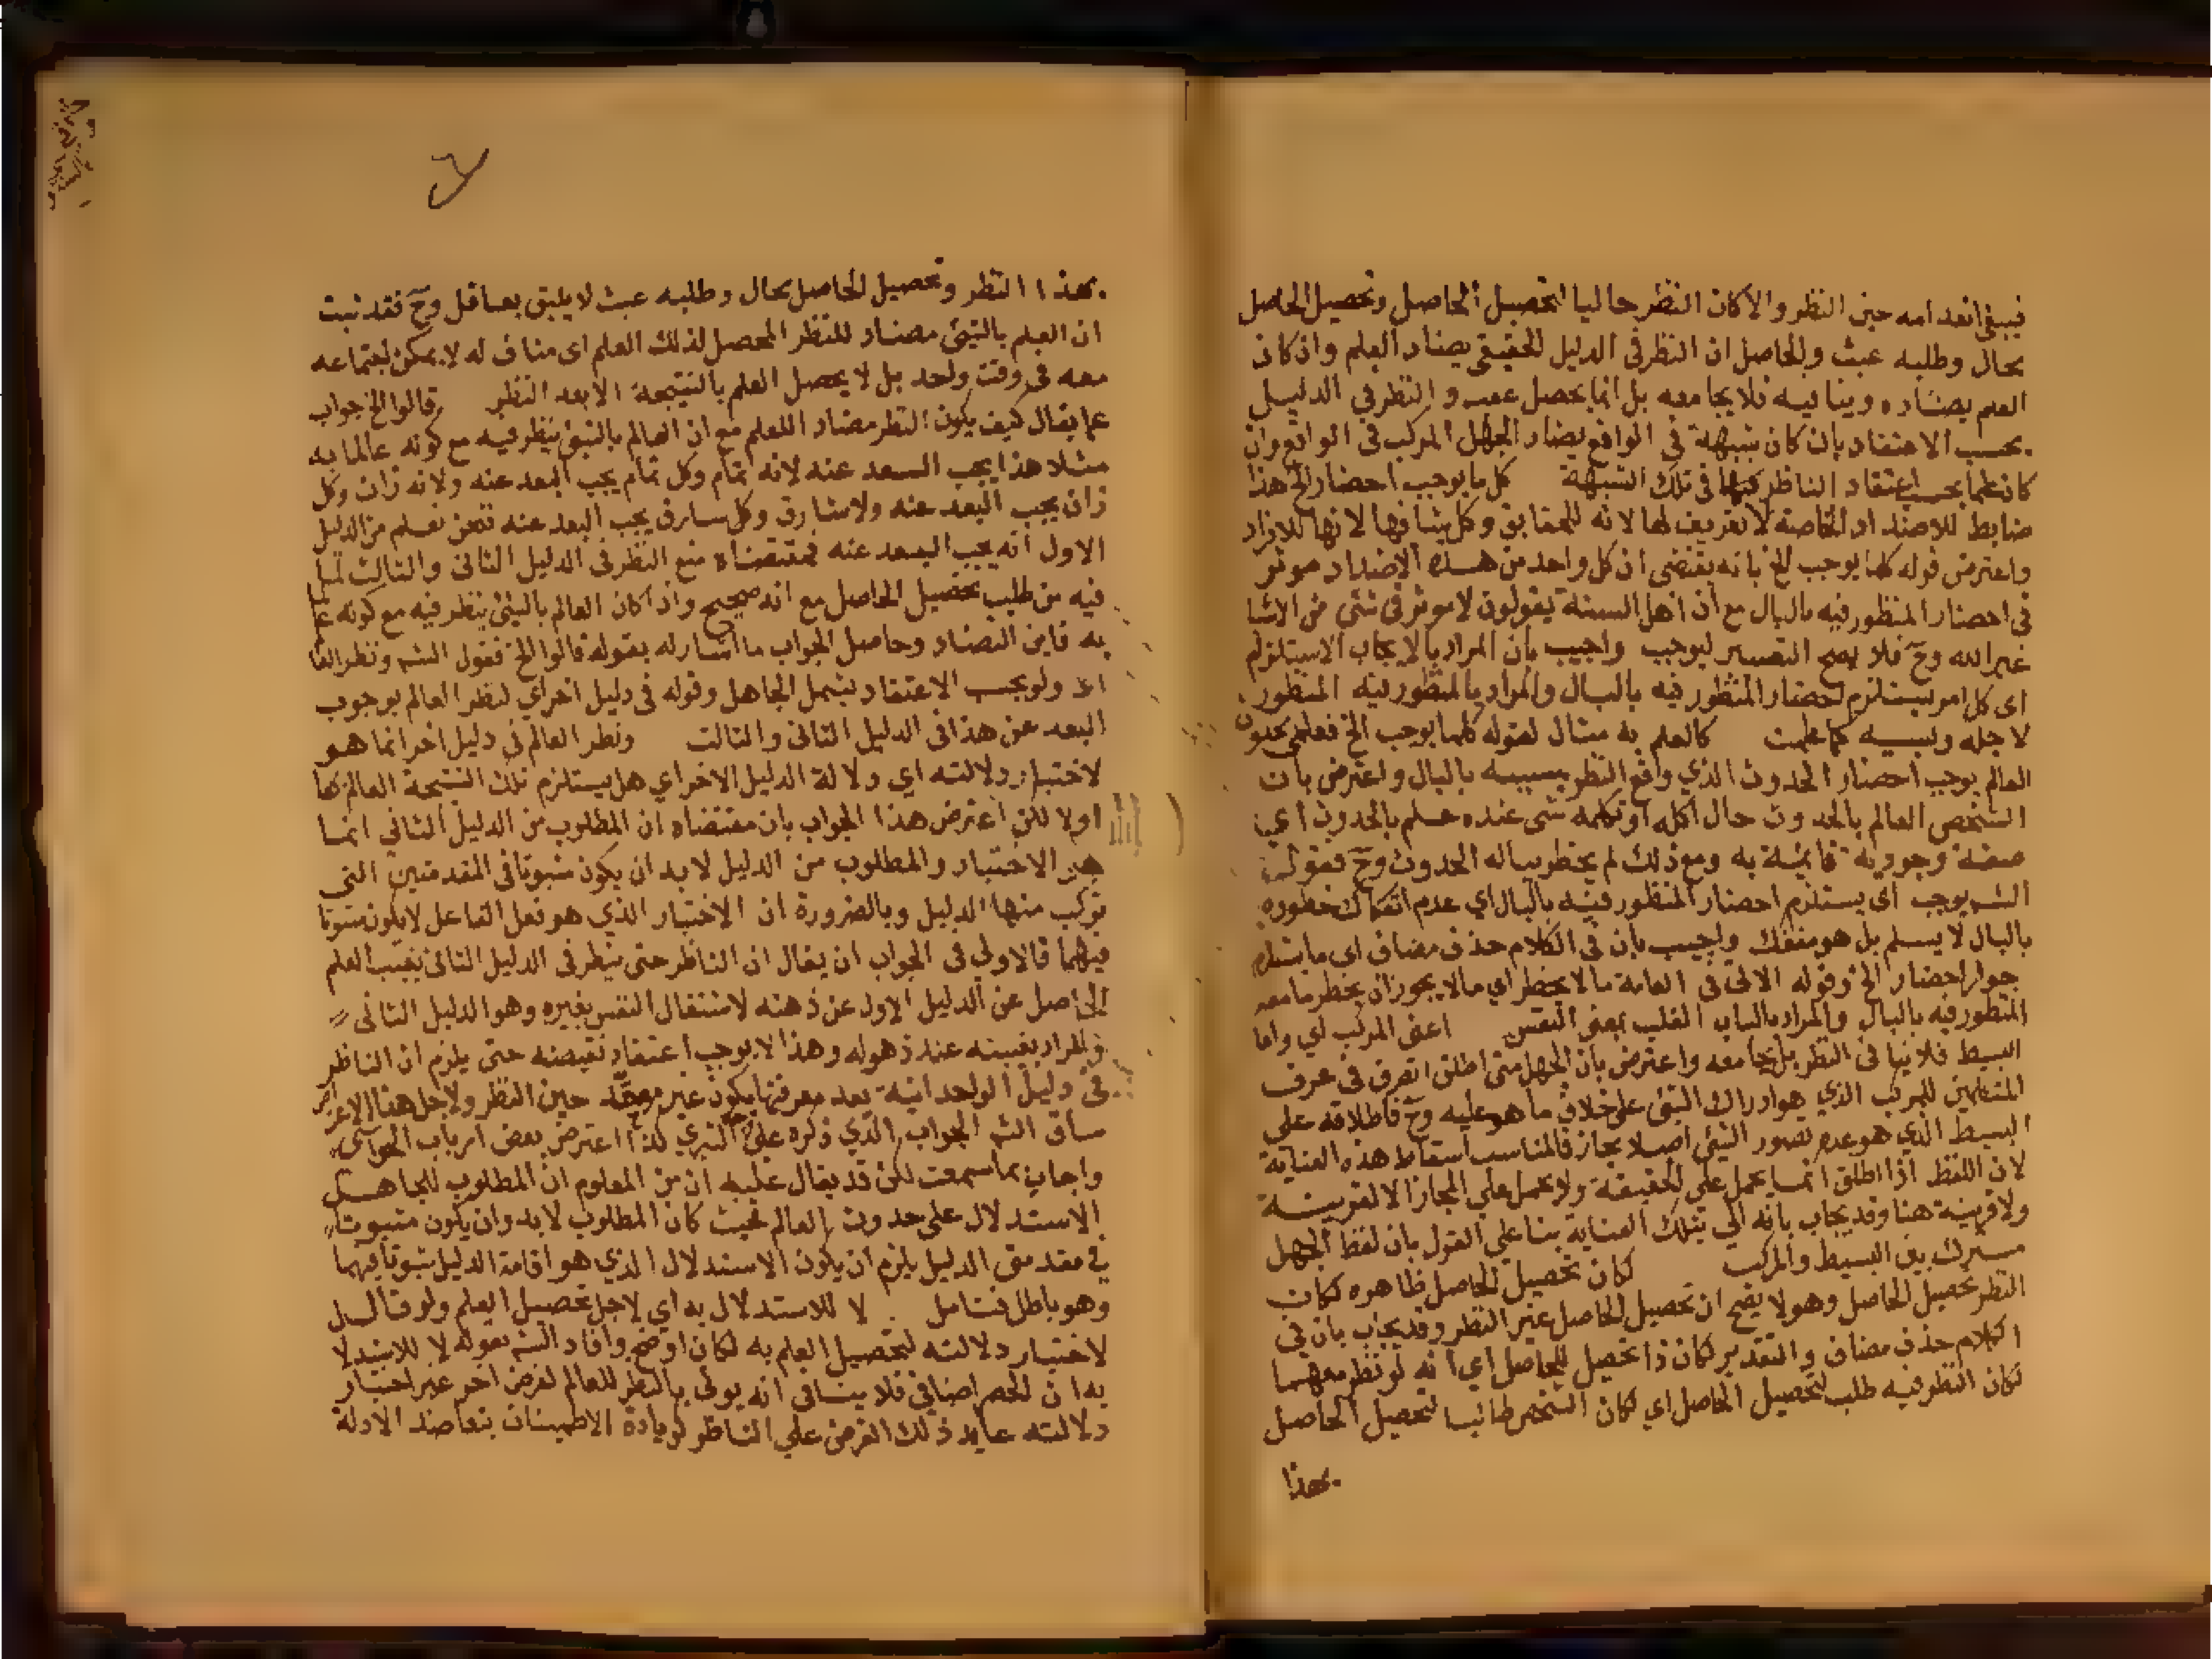 فينبغي انعدامه حين النظر والا كان النظر حاليا لتحصيل الحاصل وتحصيل الحاصل
محال وطلبه عبث والحاصل ان النظر في الدليل الحقيقي يضاد العلم وان كان
العلم يضاده وينافيه فلا يجامعه بل انما يحصل عقبه والنظر في الدليل
بحسب الاعتقاد بان كان شبهة في الواقع يضاد الجهل المركب في الواقع وان
كان علما بحسب اعتقاد الناظر في تلك الشبهة كل ما يوجب احضار الخ هذا
ضابط للاضداد الخاصة لا تعريف لها لانه للحقايق وكل ينافيها لانها للافراد
واعترض قوله كلما يوجب الخ بانه يقتضي ان كل واحد من هذه الاضداد موثر
في احضار المنظور فيه بالبال مع ان اهل السنة يقولون لا موثر في شئ من الاشيا
غير الله وح فلا يصح التفسير ليوجب واجيب بان المراد بالايجاب الاستلزام
اى كل امر يستلزم احضار المنظور فيه بالبال والمراد بالمنظور فيه المنظور
لاجله وبسببه كما علمت كالعلم به مثال لقوله كلما يوجب الخ فعلمي بحدوث
العالم يوجب احضار الحدوث الذي وقع النظر بسببه بالبال واعترض بان
الشخص العالم بالحدوث حال اكله او تكلمه شى عنده علم بالحدوث اي
صفة وجودية قايمة به ومع ذلك لم يخطر بباله الحدوث وح فقول
الشم يوجب اى يستلزم احضار المنظور فيه بالبال اي عدم انفكاك خطوره
بالبال لا يسلم بل هو منفك واجيب بان في الكلام حذف مضاف اى ما يستلزم
جواز احضار الخ وقوله الاتى في العامة ما لا يخطر اي ما لا يجوز ان يخطر ما معه
المنظور فيه بالبال والمراد بالبال القلب بمعنى النفس اعنى المركب اي واما
البسيط فلا ينافى النظر بل يجامعه واعترض بان الجهل متى اطلق انصرف في عرف
المتكلمين للمركب الذي هو ادراك الشئ على خلاف ما هو عليه وح فاطلاقه على
البسيط الذي هو عدم تصور الشئ اصلا مجاز فالمناسب اسقاط هذه العناية
لان اللفظ اذا اطلق انما يحمل على الحقيقة ولا يحمل على المجاز الا لقرينة
ولا قرينة هنا وقد يجاب بانه اتى بتلك العناية بنا على القول بان لفظ الجهل
مشترك بين البسيط والمركب لكان تحصيل الحاصل ظاهره لكان
النظر تحصيل الحاصل وهو لا يصح ان تحصيل الحاصل غير النظر وقد يجاب بان في
الكلام حذف مضاف والتقدير لكان ذا تحصيل الحاصل اي انه لو نظر معهما
لكان النظر فيه طلب لتحصيل الحاصل اي لكان الشخص طالبا لتحصيل الحاصل
بهذا
بهذا النظر وتحصيل الحاصل محال وطلبه عبث لا يليق بعاقل وح فقد ثبت
ان العلم بالشئ مضاد للنظر المحصل لذلك العلم اى مناف له لا يمكن اجتماعه
معه في وقت واحد بل لا يحصل العلم بالنتيجة الا بعد النظر قالوا الخ جواب
عما يقال كيف يكون النظر مضاد اللعلم مع ان العالم بالشئ ينظر فيه مع كونه عالما به
مثلا هذا يجب البعد عنه لانه نمام وكل نمام يجب البعد عنه ولانه زان وكل
زان يجب البعد عنه ولا سارق وكل سارق يجب البعد عنه فنحن نعلم من الدليل
الاول انه يجب البعد عنه فمقتضاه منع النظر في الدليل الثانى والثالث لما
فيه من طلب تحصيل الحاصل مع انه صحيح واذا كان العالم بالشئ ينظر فيه مع كونه
به فاين التضاد وحاصل الجواب ما اشار له بقوله قالوا الخ فقول الشم ونظر
اى ولو بحسب الاعتقاد يشمل الجاهل وقوله في دليل اخر اي لنظر العالم بوجوب
البعد عن هذا فى الدليل الثانى والثالث ونظر العالم في دليل اخر انما هو
لاختبار دلالته اي دلالة الدليل الاخر اي هل يستلزم تلك النتيجة العالم بها
اولا لكن اعترض هذا الجواب بان مقتضاه ان المطلوب من الدليل الثاني انما
هو الاختبار والمطلوب من الدليل لا بد ان يكون مثبوتا فى المقدمتين التى
تركب منها الدليل وبالضرورة ان الاختبار الذي هو فعل الفاعل لا يكون مثبوتا
فيهما فالاولي فى الجواب ان يقال ان الناظر حتى ينظر في الدليل الثانى يغيب العلم
الحاصل عن الدليل الاول عن ذهنه لاشتغال النفس بغيره وهو الدليل الثانى
والمراد بغيبته عند ذهوله وهذا لا يوجب اعتقاد نقيضه حتى يلزم ان الناظر
في دليل الوحدانية بعد معرفتها يكون غير موحد حين النظر ولاجل هذا الاعتراض
ساق الشم الجواب الذي ذكره على التبري كذا اعترض بعض ارباب الحواشى
واجاب بما سمعت لكن قد يقال عليه ان من المعلوم ان المطلوب للجاهل
الاستدلال على حدوث العالم فحيث كان المطلوب لا بد وان يكون مثبوتا
في مقدمتى الدليل يلزم ان يكون الاستدلال الذي هو اقامة الدليل مثبوتا فيهما
وهو باطل فتامل لا للاستدلال به اي لاجل تحصيل العلم ولو قال
لاختبار دلالته لتحصيل العلم به لكان اوضح وافاد الشم بقوله لا للاستدلا
به ان الحصر اضافي فلا ينافى انه يوتى بالنظر للعالم لغرض اخر غير اختبار
دلالته عايد ذلك الغرض علي الناظر لزيادة الاطمينان بتعاضد الادلة